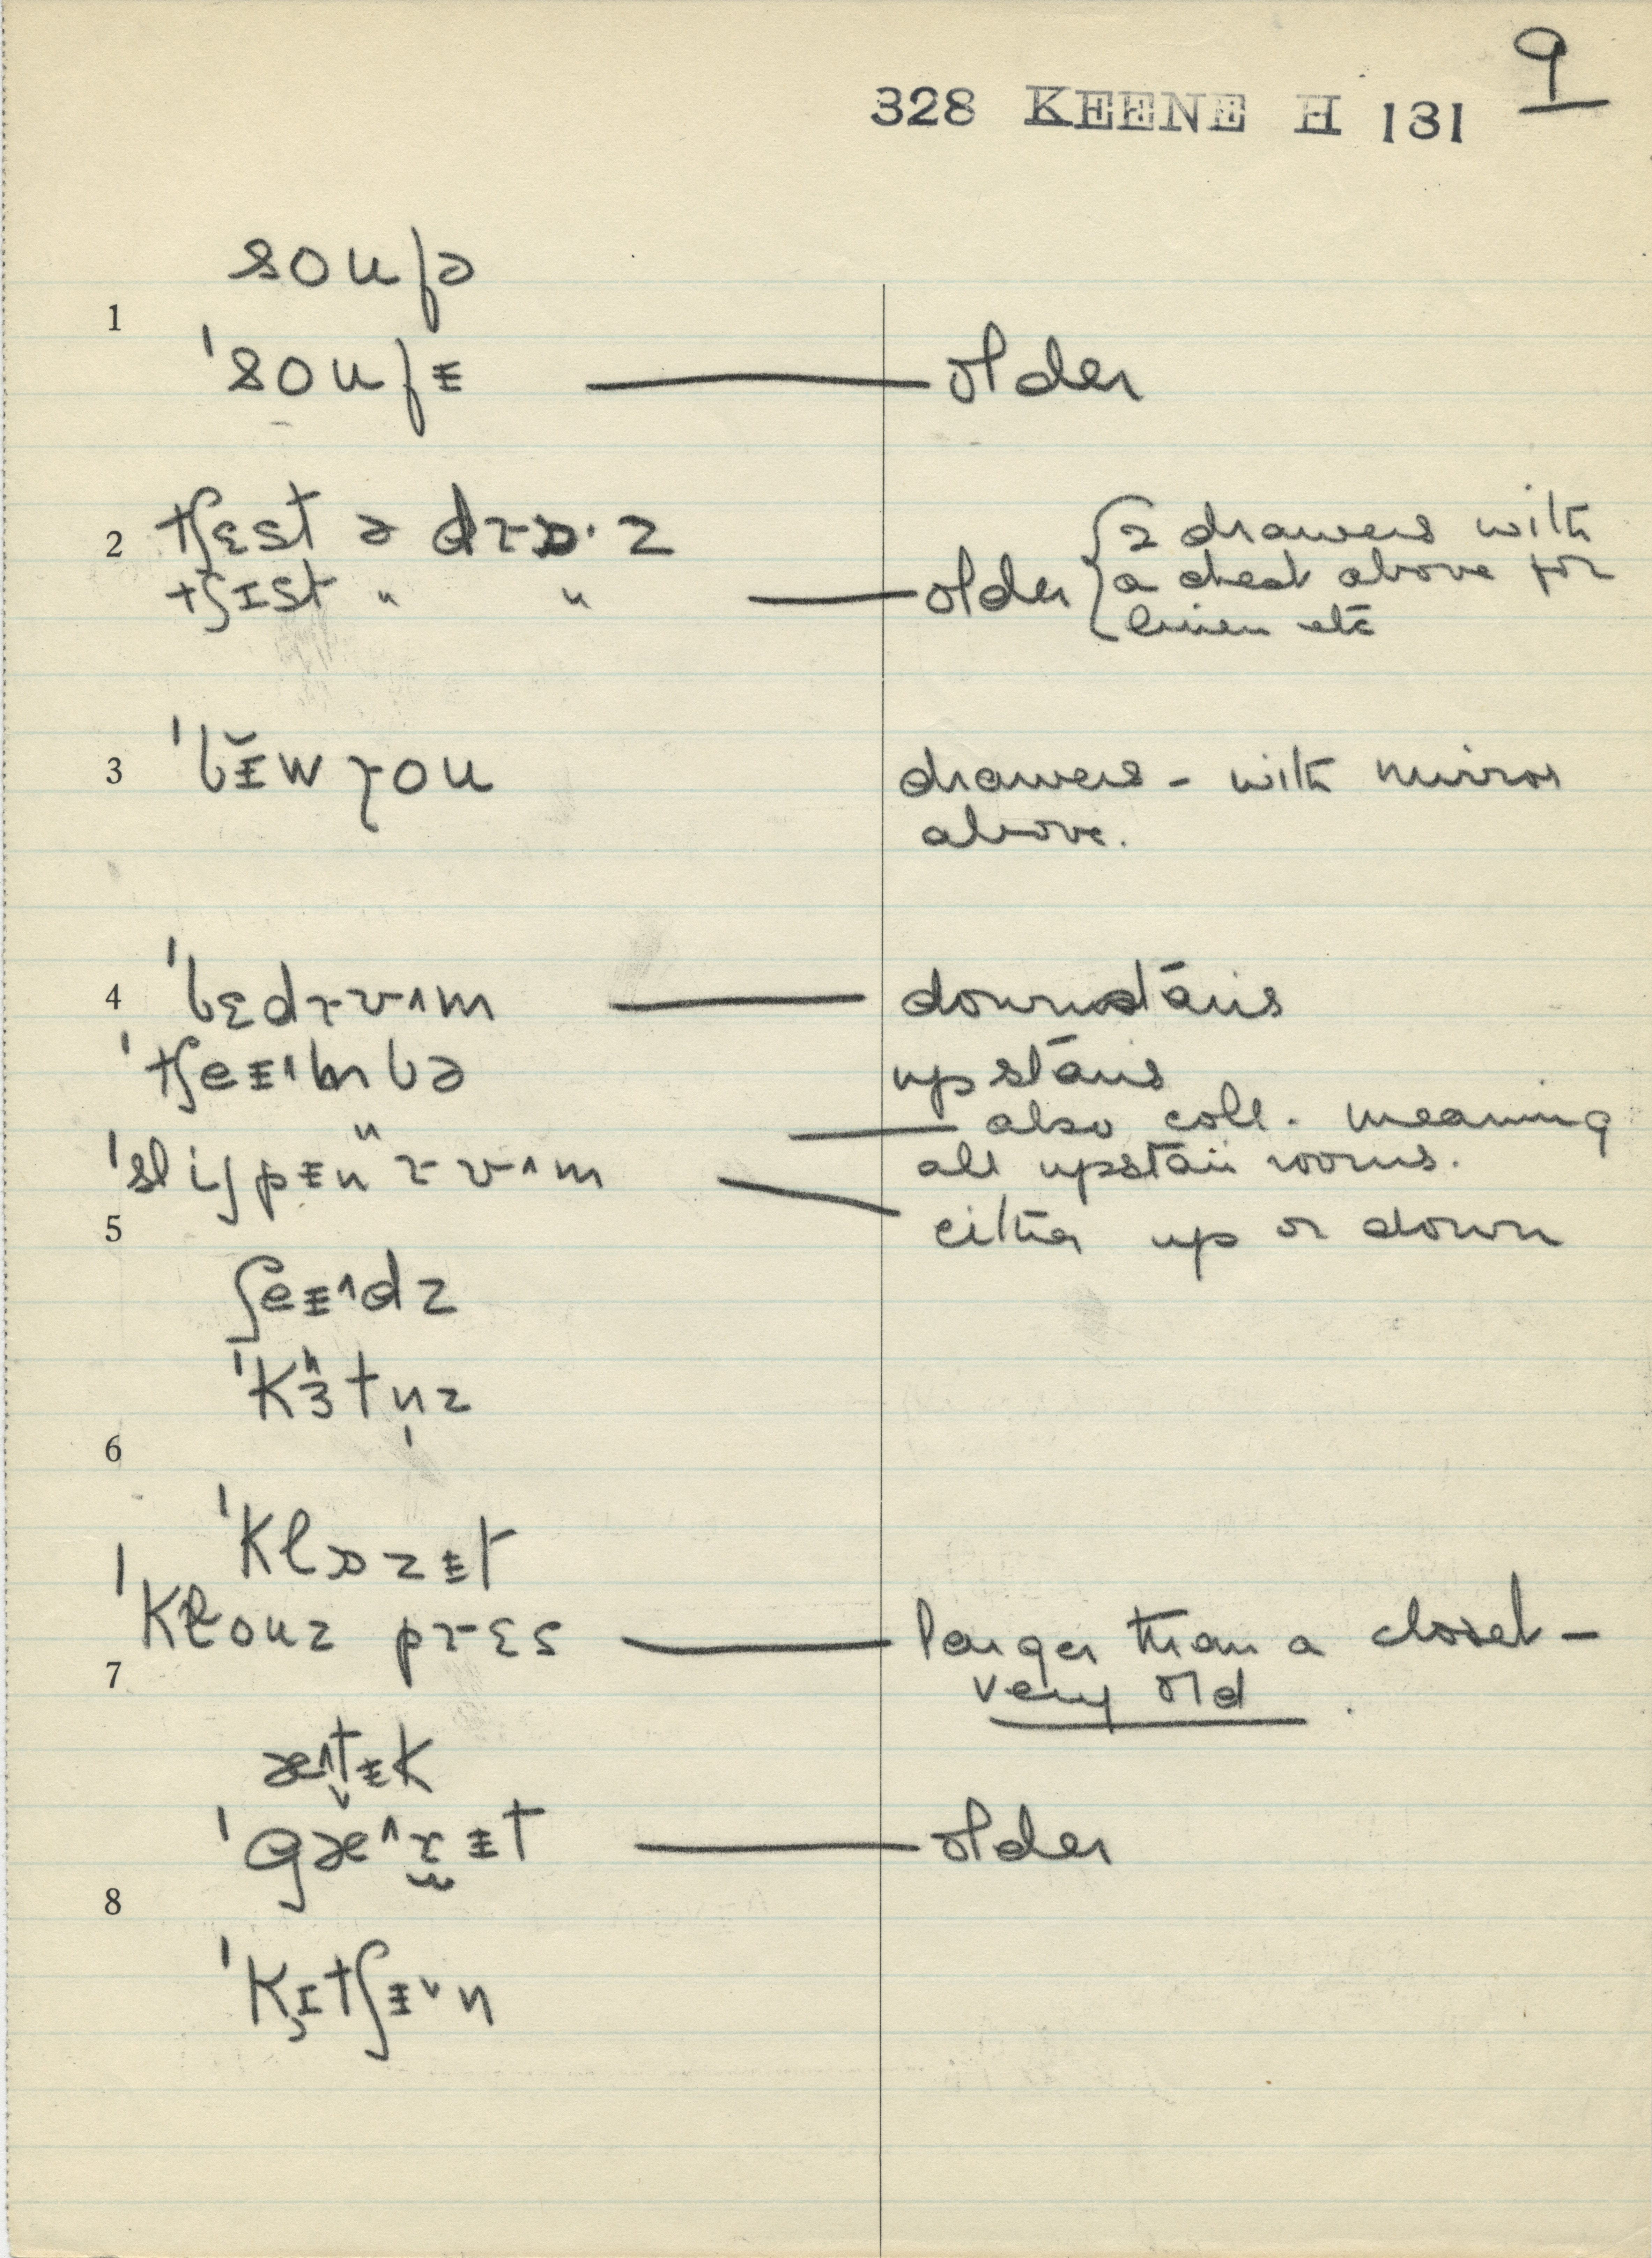 9
328 KEENE H 131
soufə
1
'soufᵻ — older
2 tʃɛst ə drɒ·z
tʃɪst " " — older { 2 drawers with
a chest above for
linen etc
3 'bɪ̆wrou drawers - with mirror
above.
4 'bɛdrʊ^m — downstairs
'tʃeᵻ^mbə upstairs
" — also coll. meaning
'slijpᵻn rʊ^m — all upstair rooms.
5 either up or down
ʃeᵻ^dz
'kɜtn̩z
6
'klɒzᵻt
'klouz prɛs — larger than a closet —
7 very old.
æ^tᵻk
'gæ^rᵻt — older
8
'kɪtʃᵻˇn